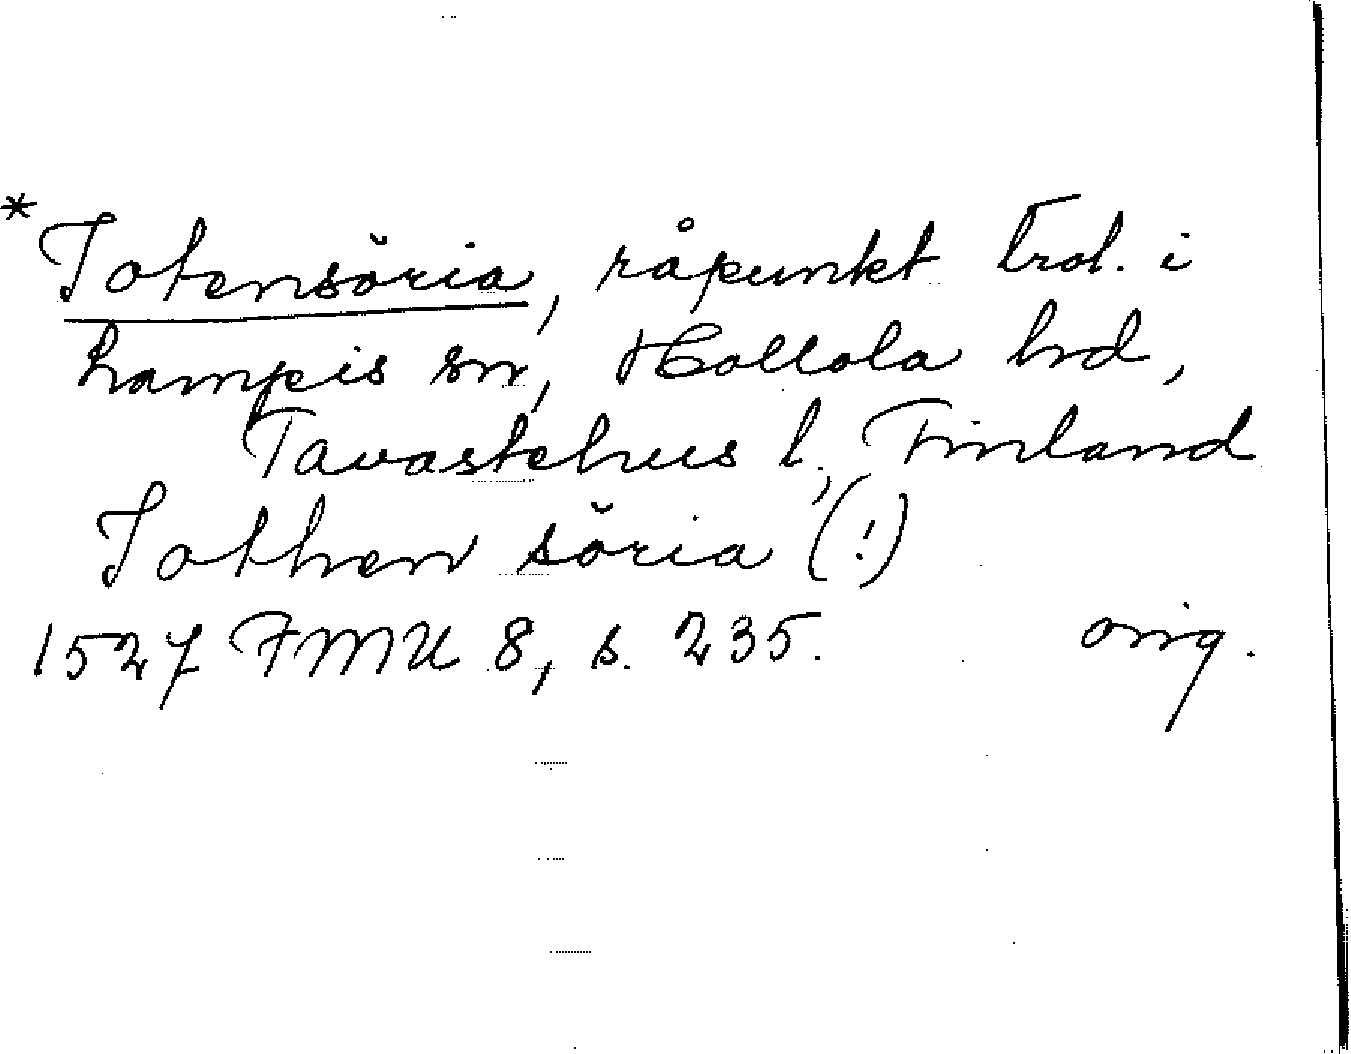 *Jotensöria, råpunkt trol. i
Lampis sn, Hollola hd,
Tavastehus l., Finland
Jothen söria (!)
1527 FMU 8, s. 235. orig.